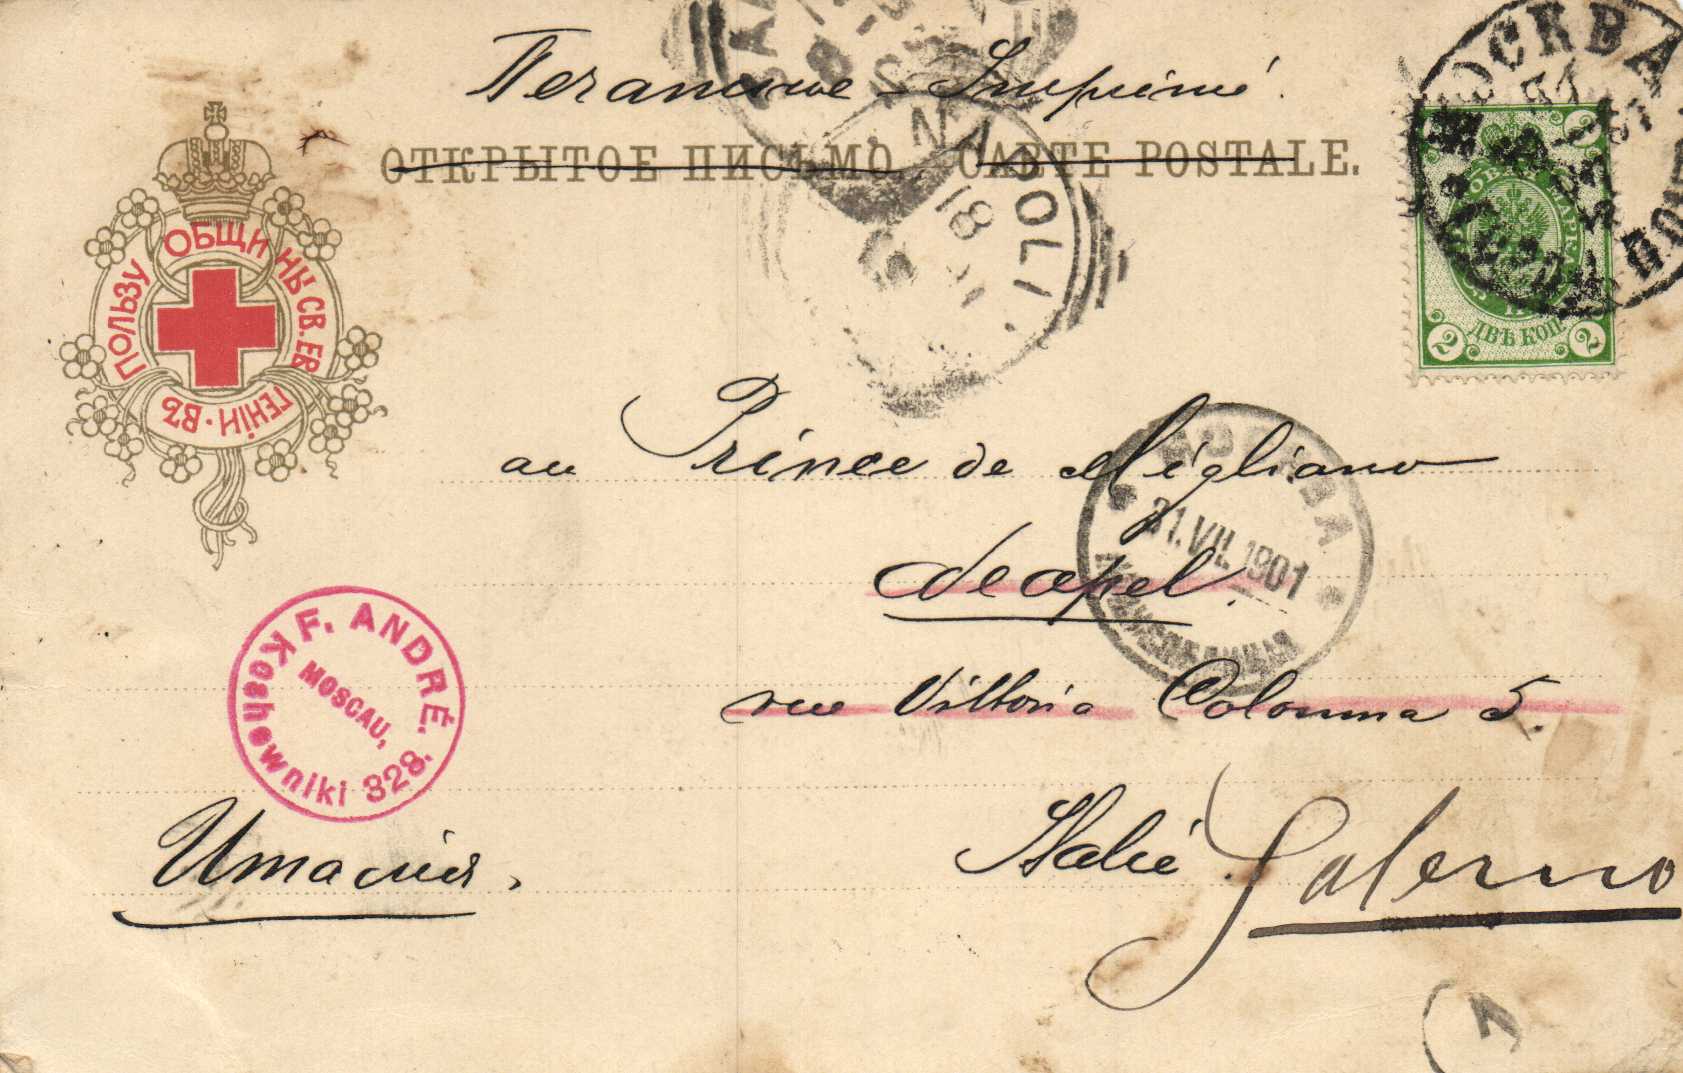 Печатное – Imprimé.
ОТКРЫТОЕ ПИСЬМО. CARTE POSTALE.
NAPOLI
18
МОСКВА
2
2
2
ДВѢ КОП.
ВЪ ПОЛЬЗУ ОБЩИНЫ СВ. ЕВГЕНІИ ·
au Prince de Migliano
Neapel.
МОСКВА
31.VII.1901
rue Vittoria Colonna 5.
F. ANDRÉ.
MOSCAU,
Koshewniki 328.
Италия.
Italie
Salerno